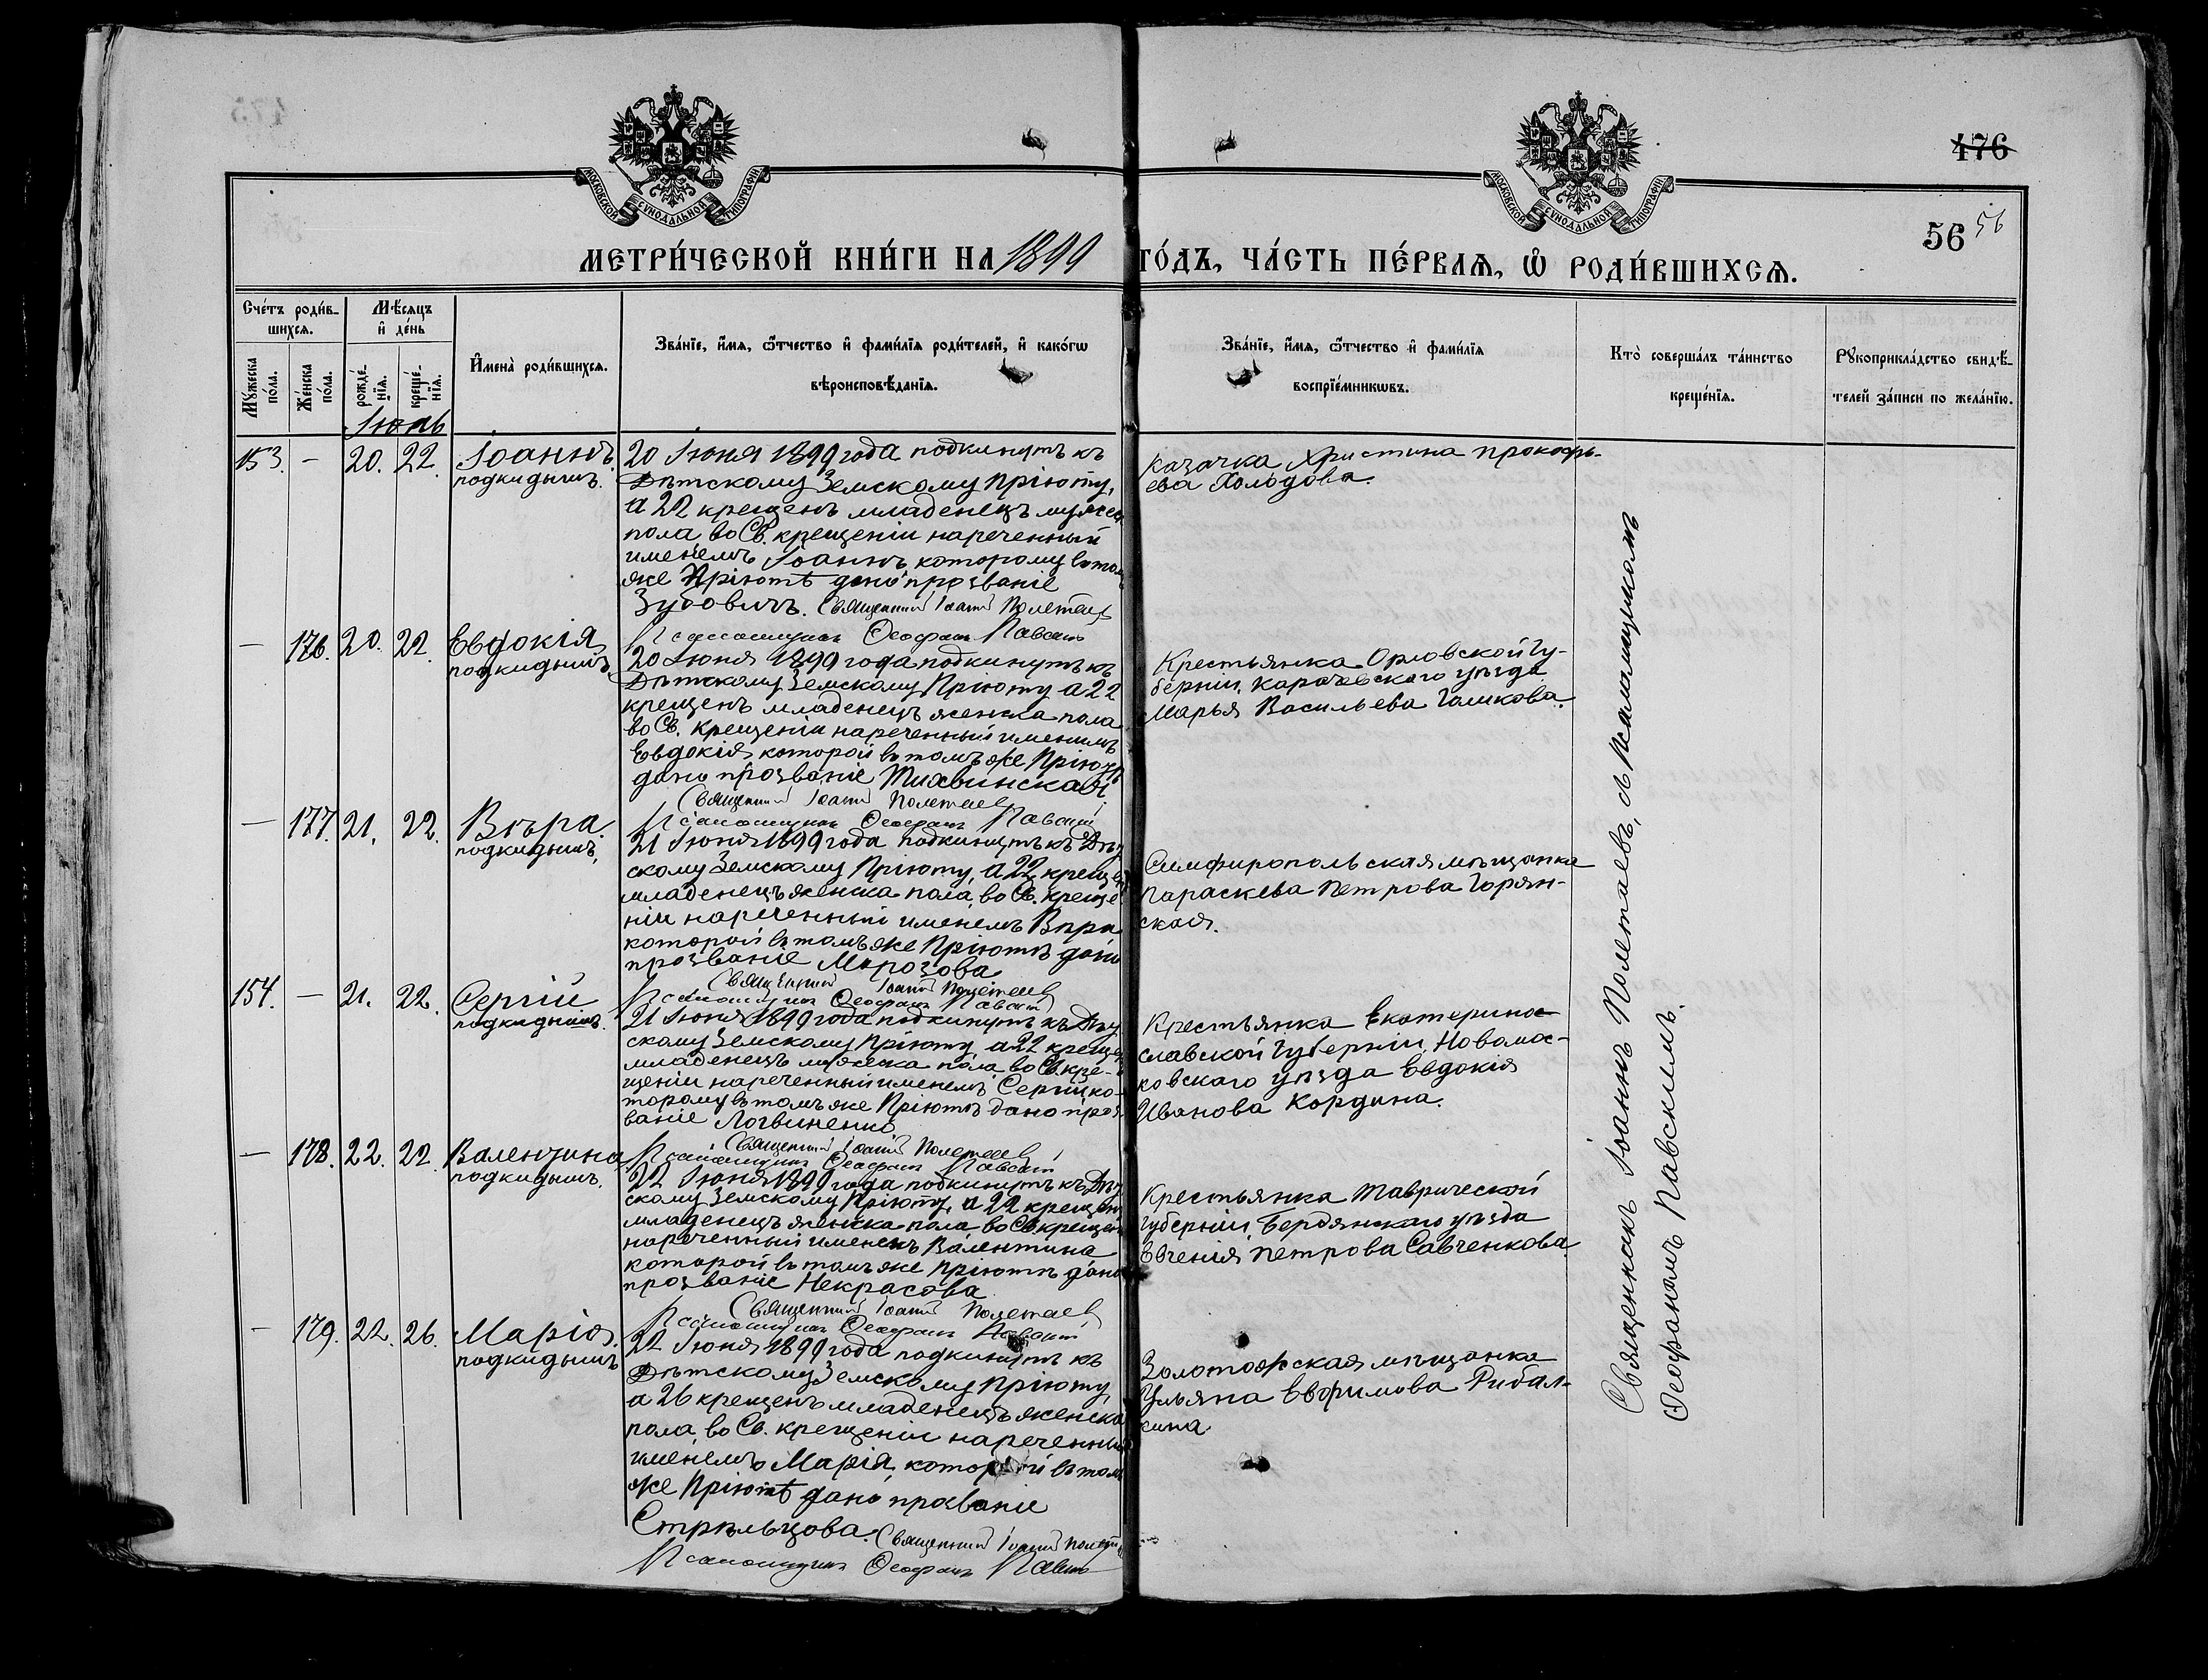 476
56 56
МОСКОВСКОЙ СѴНОДАЛЬНОЙ ТИПОГРАФІИ
МОСКОВСКОЙ СѴНОДАЛЬНОЙ ТИПОГРАФІИ
МЕТРИ́ЧЕСКОЙ КНИ́ГИ НА 1899 ГО́ДЪ, ЧА́СТЬ ПЕ́РВАѦ, Ѡ҆ РОДИ́ВШИХСѦ.
Сче́тъ роди́в-
шихсѧ.
Мꙋ́жеска
по́ла.
Же́нска
по́ла.
Мѣ́сѧцъ
и҆ де́нь
рожде́-
нїѧ.
креще́-
нїѧ.
И҆мена̀ роди́вшихсѧ.
Зва́нїе, и҆́мѧ, ѻ҆́тчество и҆ фами́лїѧ роди́телей, и҆ како́гѡ
вѣроисповѣ́данїѧ.
Зва́нїе, и҆́мѧ, ѻ҆́тчество и҆ фами́лїѧ
воспрїе́мникѡвъ.
Кто̀ соверша́лъ та́инство
креще́нїѧ.
Рꙋкоприкла́дство свидѣ́-
телей за́писи по жела́нїю.
Іюнь
153. — 20. 22. Іоаннъ
подкидышъ.
20 Іюня 1899 года подкинутъ къ
Дѣтскому Земскому Пріюту,
а 22 крещенъ младенецъ мужеска
пола, во Св. крещеніи нареченный
именемъ Іоаннъ, которому въ томъ
же Пріютѣ дано прозваніе
Зубовичъ. Священникъ Іоаннъ Полетаевъ
Псаломщикъ Ѳеофанъ Павскій
Казачка Христина Прокофь-
ева Холодова.
— 176. 20. 22. Евдокія
подкидышъ.
20 Іюня 1899 года подкинутъ къ
Дѣтскому Земскому Пріюту а 22
крещенъ младенецъ женска пола
во Св. Крещеніи нареченный именемъ
Евдокія которой въ томъ же Пріютѣ
дано прозваніе Тихвинская
Священникъ Іоаннъ Полетаевъ
Псаломщикъ Ѳеофанъ Павскій
Крестьянка Орловской Гу-
берніи, Карачевскаго уѣзда
Марья Васильева Галикова.
— 177. 21. 22. Вѣра.
подкидышъ.
21 Іюня 1899 года подкинутъ къ Дѣт
скому Земскому Пріюту, а 22 крещенъ
младенецъ женска пола, во Св. креще
ніи нареченный именемъ Вѣра
которой въ томъ же Пріютѣ дано
прозваніе Марозова
Священникъ Іоаннъ Полетаевъ
Псаломщикъ Ѳеофанъ Павскій
Симфиропольская мѣщанка
Параскева Петрова Горян-
ская.
154. — 21. 22. Сергій
подкидышъ.
21 Іюня 1899 года подкинутъ къ Дѣт
скому Земскому Пріюту а 22 крещенъ
младенецъ мужеска пола во Св. кре-
щеніи нареченный именемъ Сергій ко-
торому въ томъ же Пріютѣ дано проз
ваніе Логвиненко
Священникъ Іоаннъ Полетаевъ
Псаломщикъ Ѳеофанъ Павскій
Крестьянка Екатерино-
славской Губерніи, Новомос-
ковскаго уѣзда Евдокія
Иванова Кордина.
— 178. 22. 22. Валентина
подкидышъ.
22 Іюня 1899 года подкинутъ къ Дѣт
скому Земскому Пріюту, а 22 крещенъ
младенецъ женска пола, во Св. крещеніи
нареченный именемъ Валентина
которой въ томъ же Пріютѣ дано
прозваніе Некрасова
Священникъ Іоаннъ Полетаевъ
Псаломщикъ Ѳеофанъ Павскій
Крестьянка Таврической
губерніи, Бердянскаго уѣзда
Евгенія Петрова Савченкова
— 179. 22. 26. Марія
подкидышъ
22 Іюня 1899 года подкинутъ къ
Дѣтскому Земскому Пріюту,
а 26 крещенъ младенецъ женска
пола, во Св. крещеніи нареченный
именемъ Марія, которой въ томъ
же Пріютѣ дано прозваніе
Стрѣльцова. Священникъ Іоаннъ Полетаевъ
Псаломщикъ Ѳеофанъ Павскій
мѣщанка
Ульяна Евфимова Рибал-
кина.
Священникъ Іоаннъ Полетаевъ, съ Псаломщикомъ
Ѳеофаномъ Павскимъ.